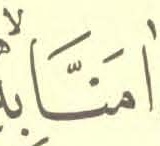 اٰمَنَّا بِهٖ